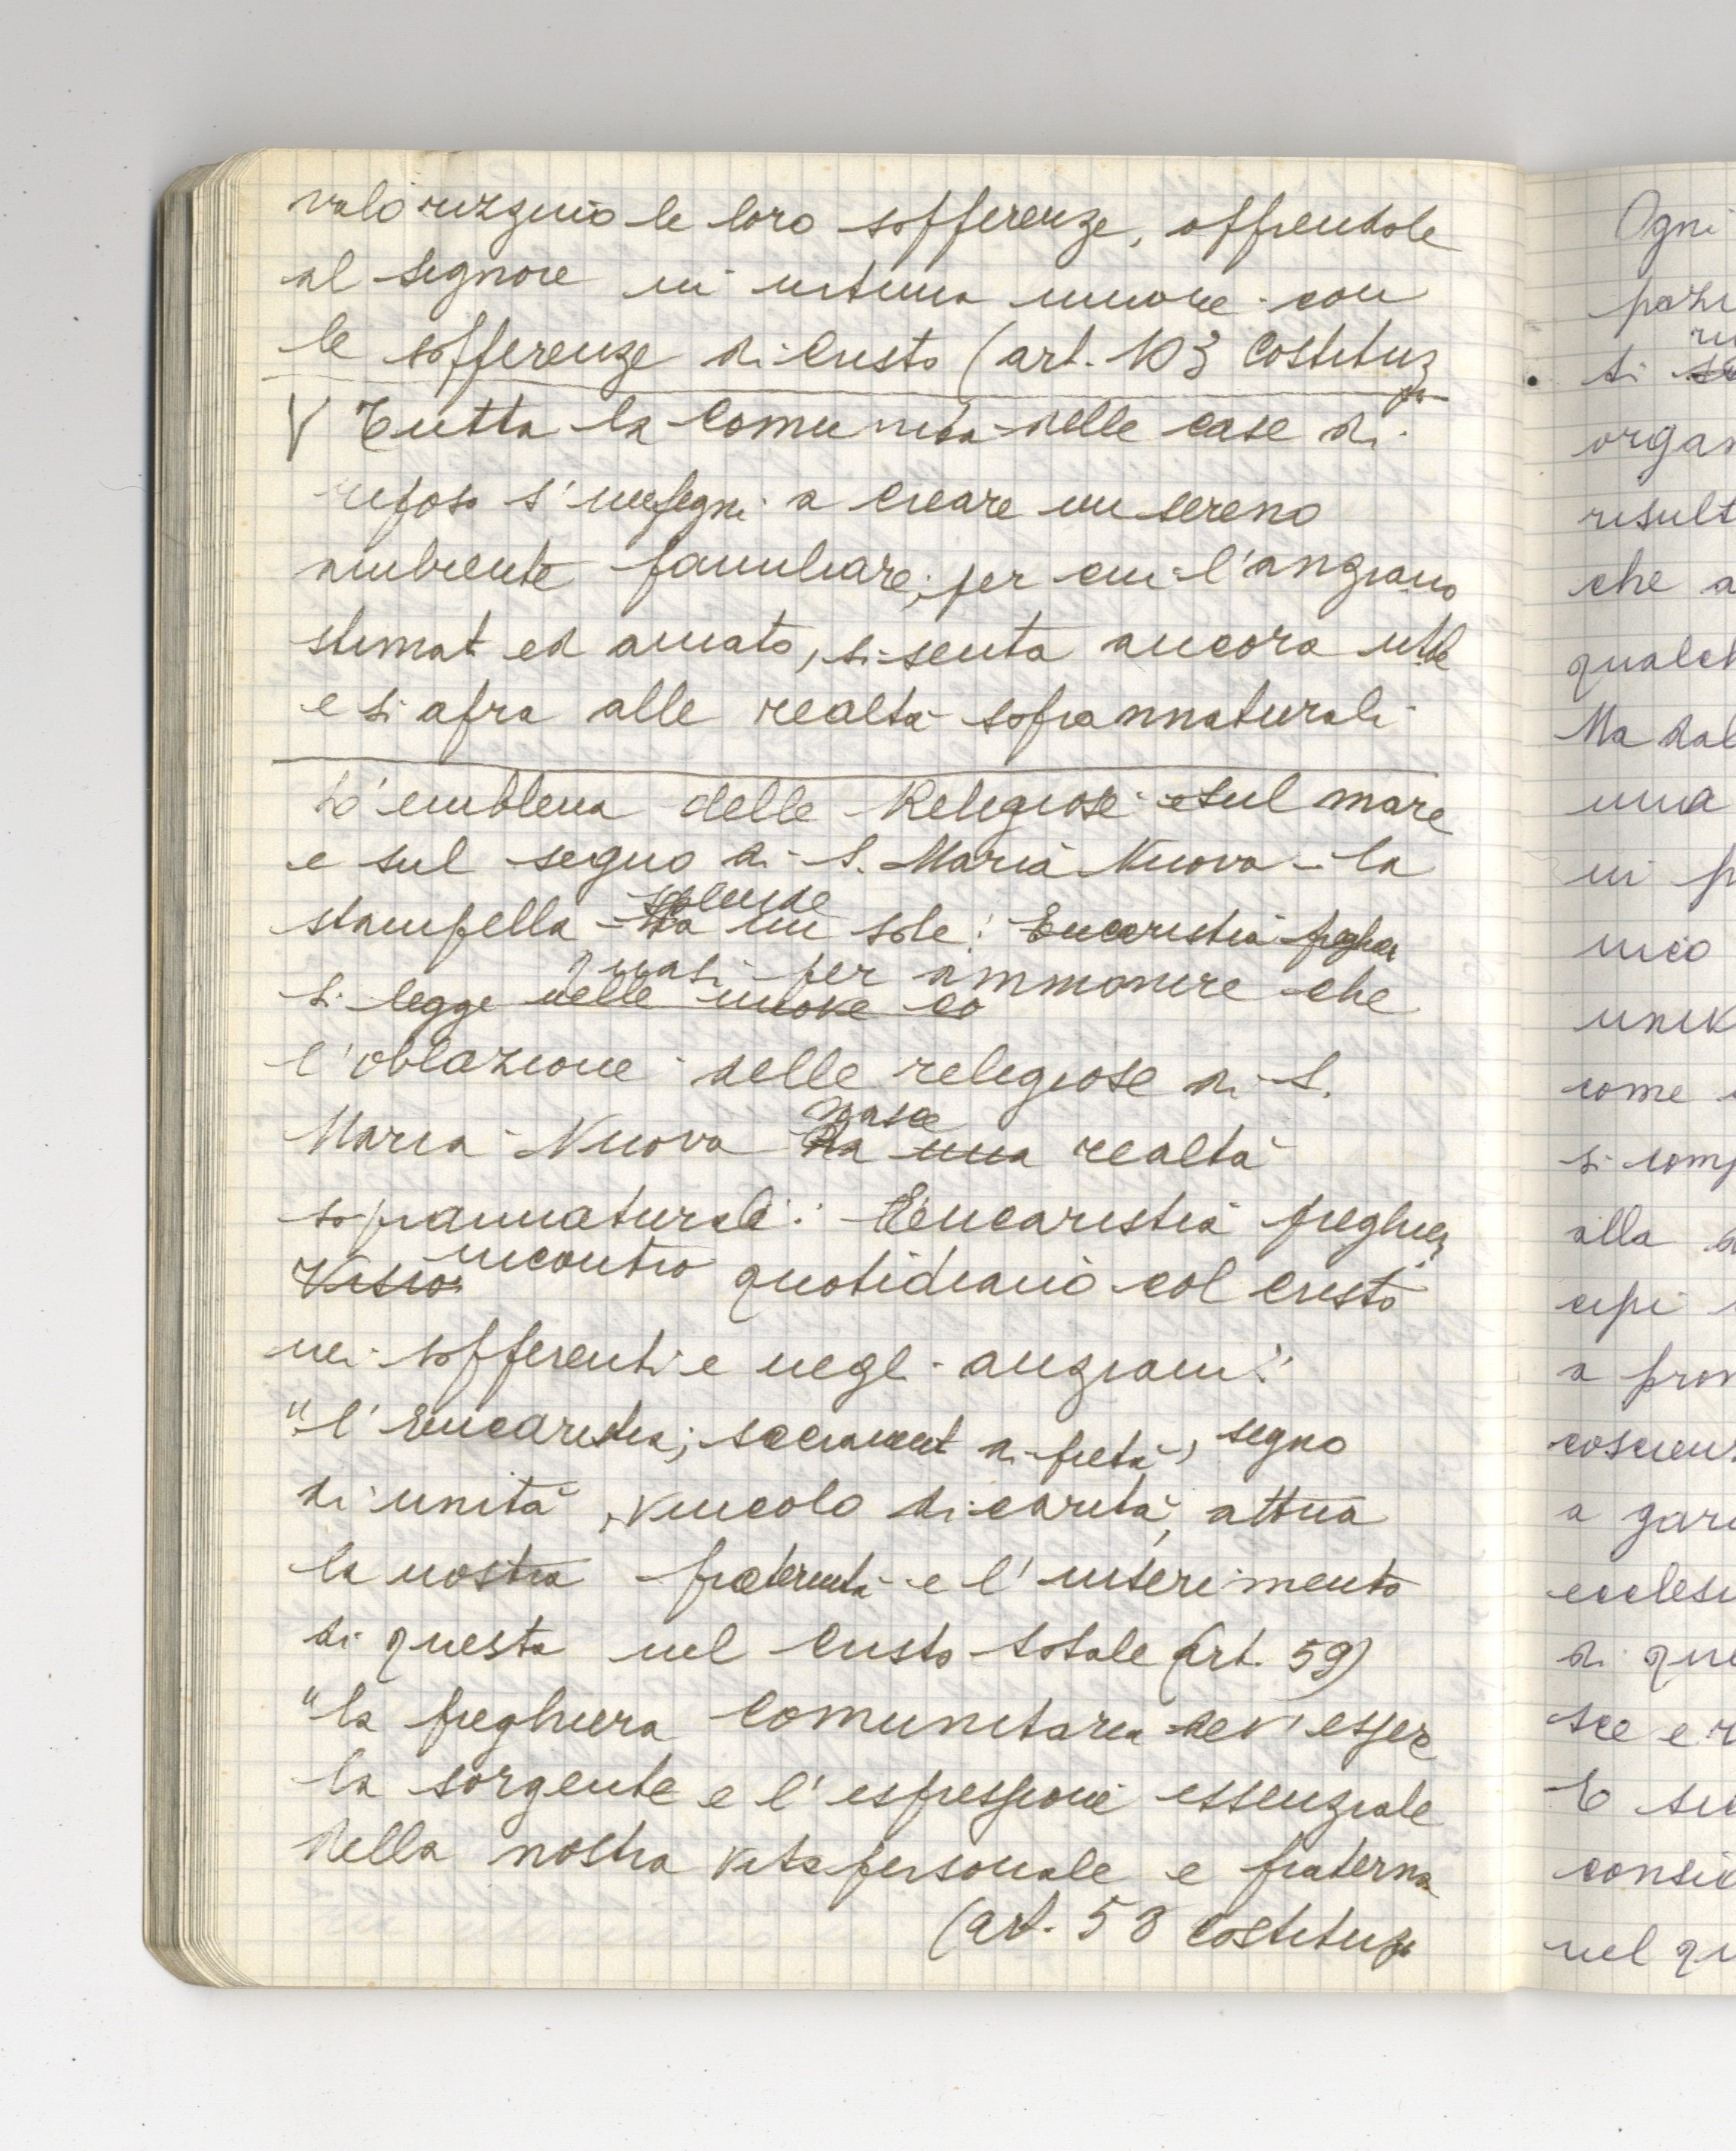 valorizzino le loro sofferenze, offrendole
al Signore in intima unione con
le sofferenze di Cristo (art. 103 Costituz
V Tutta la Comunità delle case di
riposo s'impegni a creare un sereno
ambiente familiare, per cui l'anziano
stimat ed amato, si senta ancora utile
e si apra alle realtà soprannaturali
L'emblema delle Religiose e sul mare
e sul segno di S. Maria Nuova - la
stampella - splende
Ha un sole: Eucaristia preghier
quasi per ammonire che
si legge nelle nuove co
l'oblazione delle religiose di S.
nasce
Maria Nuova da una realtà
soprannaturali: Eucaristia preghiera,
incontro
Visio quotidiano col Cristo
nei sofferenti e negli anziani:
"l'Eucaristia, sacrament di pietà, segno
di unità, vincolo di carità, attua
la nostra fraternità e l'inserimento
di questa nel Cristo totale (art. 59)
"la preghiera comunitaria dev'essere
la sorgente e l'espressione essenziale
della nostra vita personale e fraterna
(art. 58 Costituz
Ogni
si
organ
risult
che a
qualch
Ma dal
una
in p
come
si comp
alla
a pron
coscienz
a gar
ecclesi
di que
sce e r
E
consid
nel qu